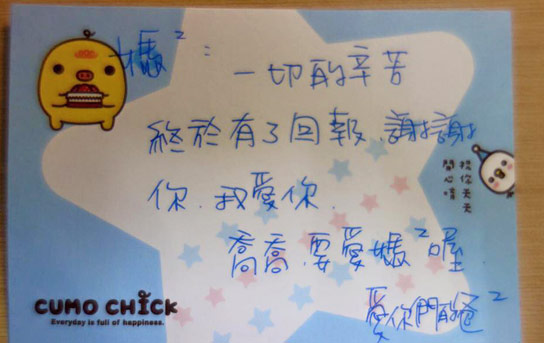 媽²:
一切的辛苦
終於有了回報.謝謝
你.我愛你.
喬喬.要愛媽²喔
愛你們的爸²
祝你天天
開心唷
CUMO CHICK
Everyday is full of happiness.